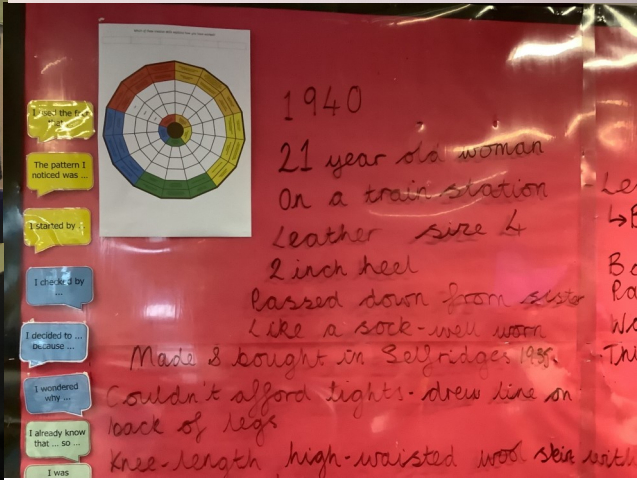 I used the fact that ...
The pattern I noticed was ...
I started by ...
I checked by ...
I decided to ... because ...
I wondered why ...
I already know that ... so ...
I was
1940
21 year old woman
On a train station
Leather size 4
2 inch heel
Passed down from sister
Like a sock - well worn
Made & bought in Selfridges
Couldn't afford tights - drew line on
back of legs
Knee-length high-waisted wool skirt with
Le
↳
Bo
Pa
Wo
Thi